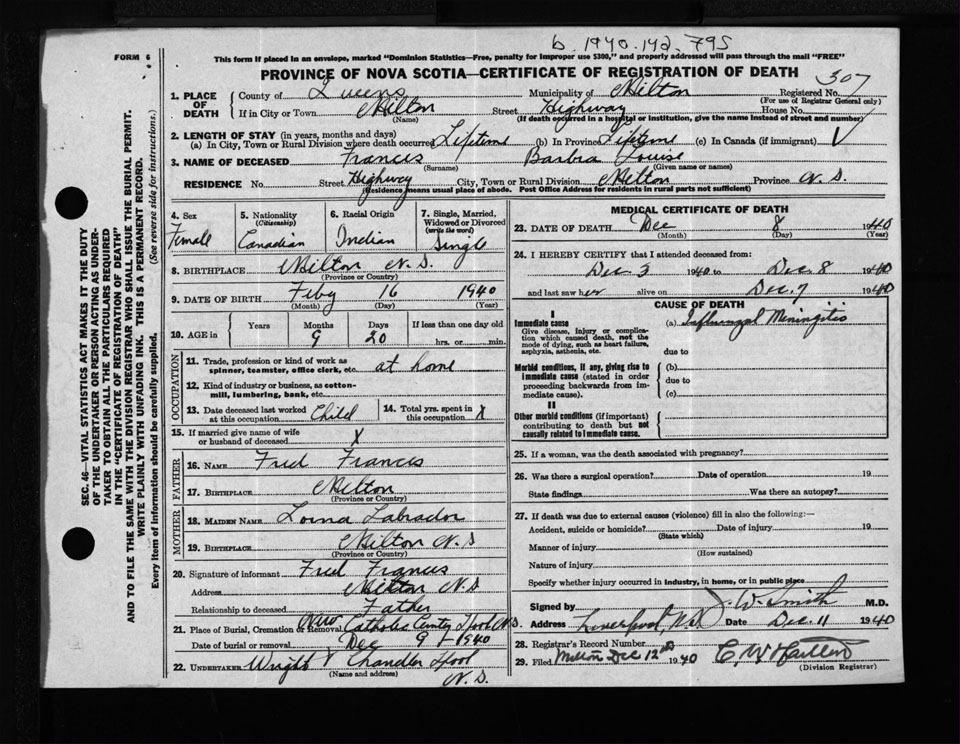 b. 1940. 142. 795
FORM 6
This form if placed in an envelope, marked "Dominion Statistics—Free, penalty for improper use $300," and properly addressed will pass through the mail "FREE"
PROVINCE OF NOVA SCOTIA—CERTIFICATE OF REGISTRATION OF DEATH
307
1. PLACE OF DEATH County of Queens Municipality of Milton Registered No.
(For use of Registrar General only)
If in City or Town Milton Street Highway House No.
(Name) (If death occurred in a hospital or institution, give the name instead of street and number)
2. LENGTH OF STAY (in years, months and days)
(a) In City, Town or Rural Division where death occurred Lifetime (b) In Province Lifetime (c) In Canada (if immigrant)
3. NAME OF DECEASED Frances Barbra Louise
(Surname) (Given name or names)
RESIDENCE No. Street Highway City, Town or Rural Division Milton Province N. S.
(Residence means usual place of abode. Post Office Address for residents in rural parts not sufficient)
SEC. 46—VITAL STATISTICS ACT MAKES IT THE DUTY
OF THE UNDERTAKER OR PERSON ACTING AS UNDER-
TAKER TO OBTAIN ALL THE PARTICULARS REQUIRED
IN THE "CERTIFICATE OF REGISTRATION OF DEATH"
AND TO FILE THE SAME WITH THE DIVISION REGISTRAR WHO SHALL ISSUE THE BURIAL PERMIT.
WRITE PLAINLY WITH UNFADING INK. THIS IS A PERMANENT RECORD.
Every item of information should be carefully supplied. (See reverse side for instructions.)
4. Sex Female
5. Nationality (Citizenship) Canadian
6. Racial Origin Indian
7. Single, Married, Widowed or Divorced (write the word) Single
8. BIRTHPLACE Milton N. S.
(Province or Country)
9. DATE OF BIRTH Feby 16 1940
(Month) (Day) (Year)
10. AGE in Years Months Days If less than one day old
9 20 hrs. or min.
OCCUPATION
11. Trade, profession or kind of work as spinner, teamster, office clerk, etc. at home
12. Kind of industry or business, as cotton-mill, lumbering, bank, etc.
13. Date deceased last worked at this occupation Child
14. Total yrs. spent in this occupation X
15. If married give name of wife or husband of deceased X
FATHER
16. NAME Fred Frances
17. BIRTHPLACE Milton
(Province or Country)
MOTHER
18. MAIDEN NAME Lorna Labrador
19. BIRTHPLACE Milton N. S
(Province or Country)
20. Signature of informant Fred Frances
Address Milton N. S
Relationship to deceased Father
21. Place of Burial, Cremation or Removal New Catholic Cemty
Date of burial or removal Dec 9 1940
22. UNDERTAKER Wright & Chandler
(Name and address) N. S.
MEDICAL CERTIFICATE OF DEATH
23. DATE OF DEATH Dec 8 1940
(Month) (Day) (Year)
24. I HEREBY CERTIFY that I attended deceased from:
Dec 3 1940 to Dec. 8 1940
and last saw her alive on Dec. 7 1940
CAUSE OF DEATH
I
Immediate cause (a) Influenzal Meningitis
Give disease, injury or complication which caused death, not the mode of dying, such as heart failure, asphyxia, asthenia, etc.
due to
Morbid conditions, if any, giving rise to immediate cause (stated in order proceeding backwards from immediate cause). (b)
due to
(c)
II
Other morbid conditions (if important) contributing to death but not causally related to immediate cause.
25. If a woman, was the death associated with pregnancy?
26. Was there a surgical operation? Date of operation 19
State findings Was there an autopsy?
27. If death was due to external causes (violence) fill in also the following:—
Accident, suicide or homicide? Date of injury 19
(State which)
Manner of injury
(How sustained)
Nature of injury
Specify whether injury occurred in industry, in home, or in public place
Signed by J. W. Smith M.D.
Address Liverpool, N.S. Date Dec. 11 1940
28. Registrar's Record Number
29. Filed Milton Dec 12th 1940
(Division Registrar)